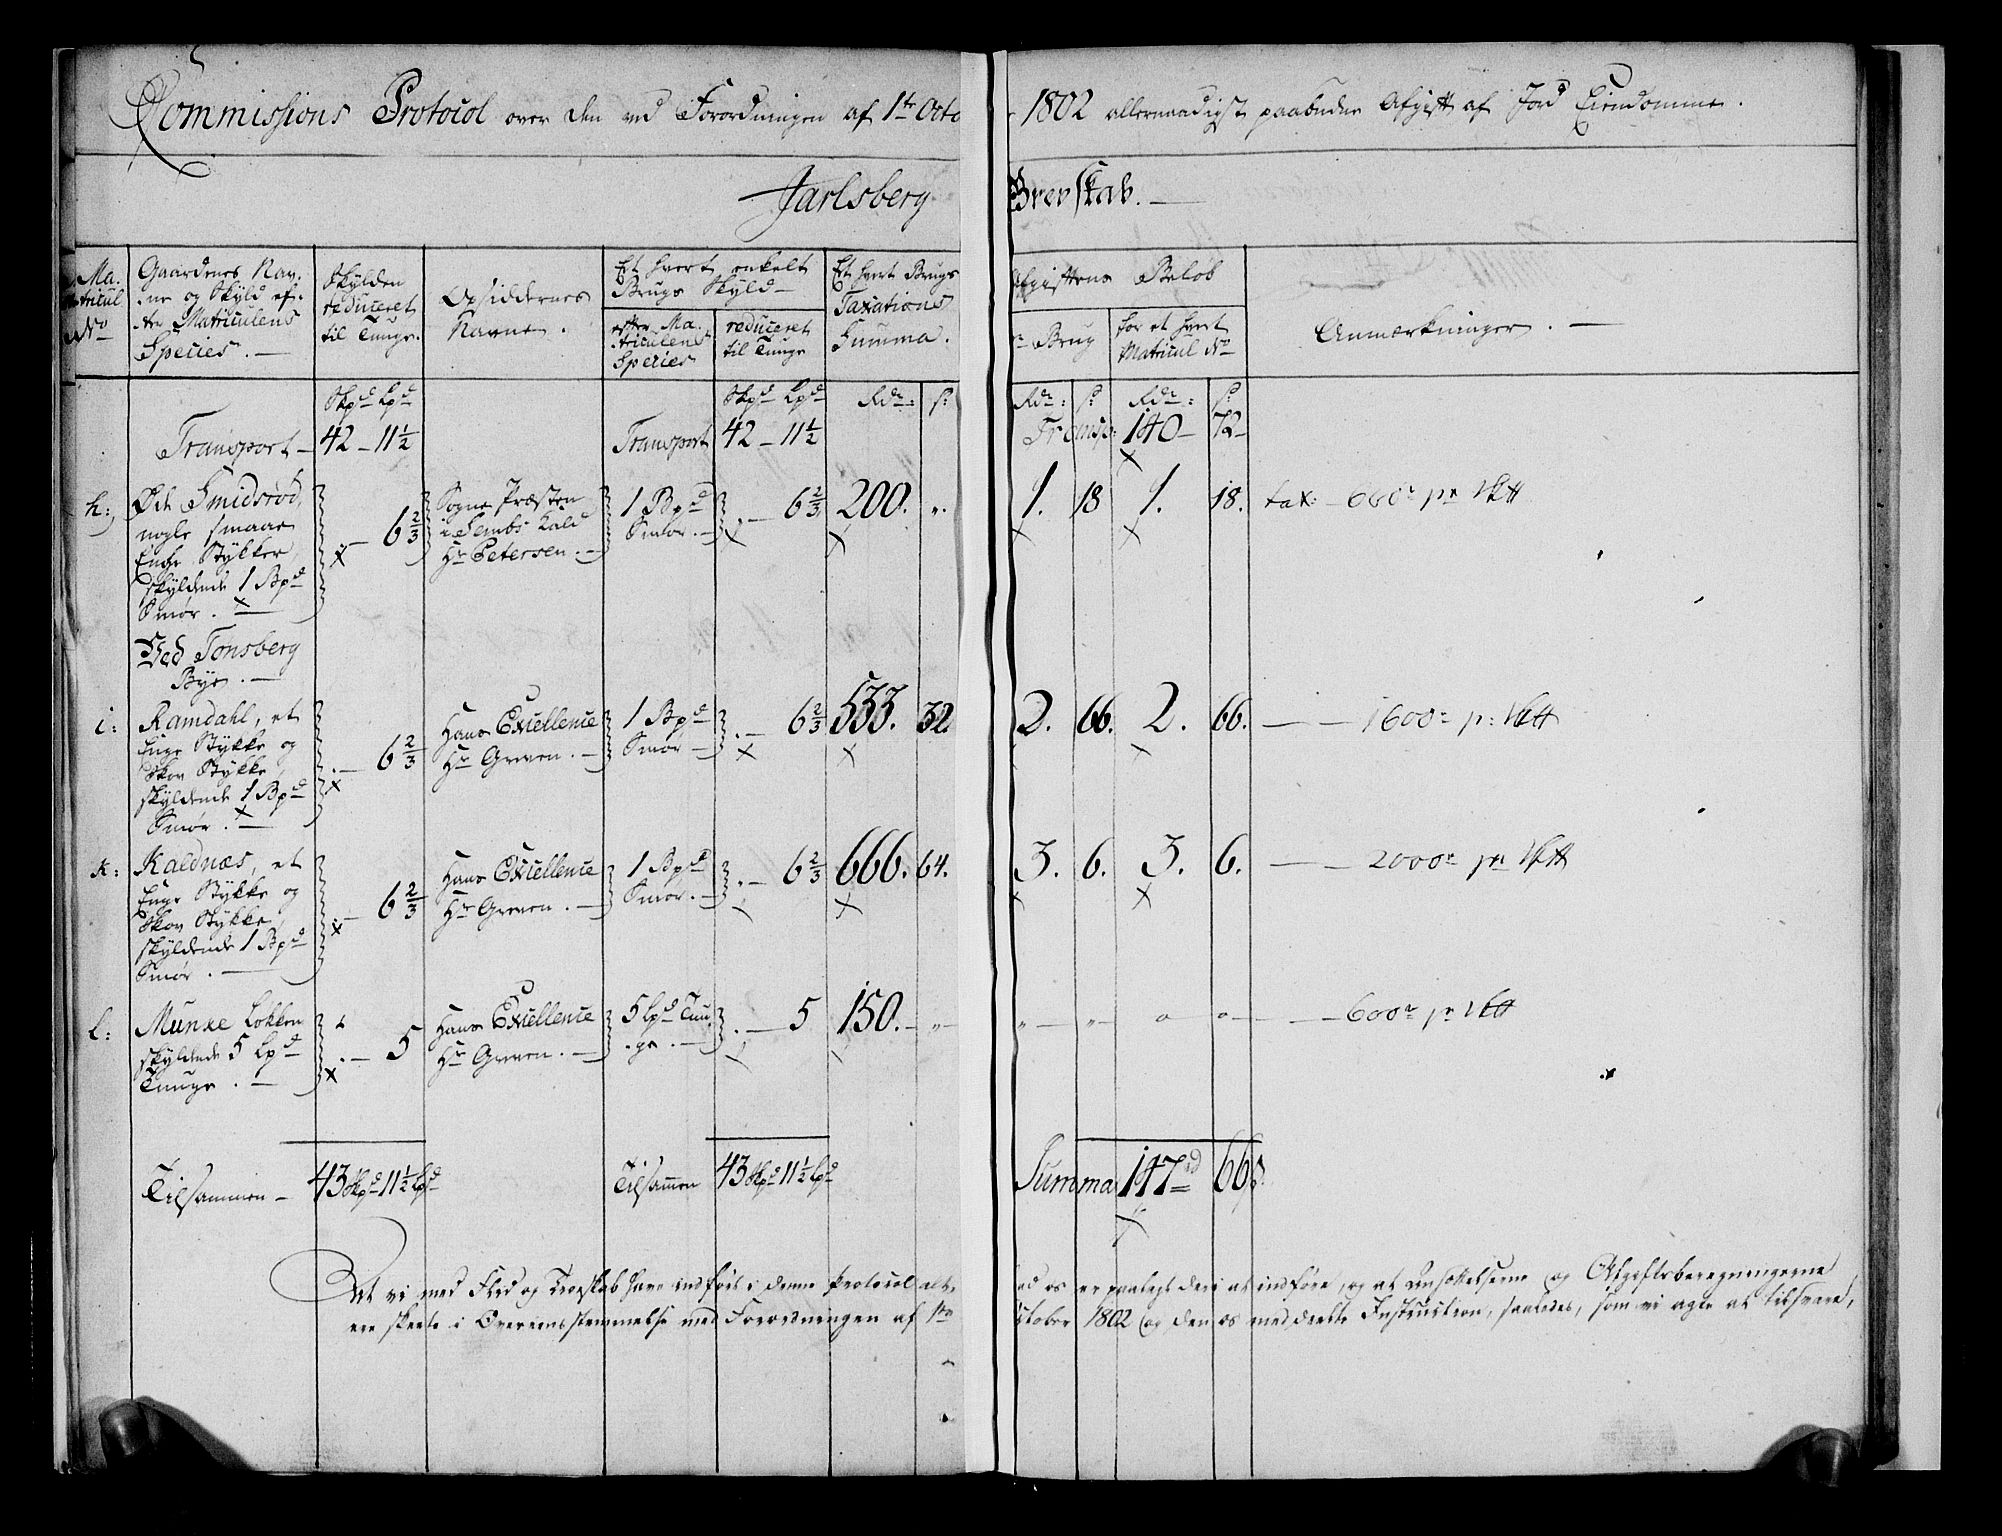 Commissions Protocol over den ved Forordningen af 1te Octo
1802 allernaadigst paabudne Afgift af Jord Eiendomme.
Jarlsberg Grevskab. —
Ma-
tricul
No
Gaardenes Nav-
ne og Skyld ef-
ter Matriculens
Species. —
Skylden
reduceret
til Tunge.
Opsiddernes
Navne.
Et hvert enkelt
Brugs Skyld —
efter Ma-
triculens
Species
reduceret
til Tunge
Et hvert Brugs
Taxations
Summa.
Afgiftens Beløb
Brug
for et hvert
Matricul No
Anmærkninger. —
Skpd Lpd
Skpd Lpd
Rdr: s:
Rdr: s:
Rdr: s:
Transport — 42 — 11½
Transport 42 — 11½
Transp: 140 — 72 —
h: Øde Smidsrød,
nogle smaae
Enge Stykker,
skyldende 1 Bpd
Smør. —
. — 6⅔
Sogne Præsten
i Sembs Kald
Hr Petersen. —
1 Bpd
Smør. —
. — 6⅔ 200. ".
1. 18 1. 18. tax: — 600r pr Vktt
Ved Tonsberg
Bye. —
i: Ramdahl, et
Enge Stykke og
Skov Stykke,
skyldende 1 Bpd
Smør. —
. — 6⅔
Hans Excellence
Hr Greven. —
1 Bpd
Smør —
. — 6⅔ 533. 32.
2. 66. 2. 66. — — 1600r p: Vktt
k: Kaldnæs, et
Enge Stykke og
Skov Stykke,
skyldende 1 Bpd
Smør. —
. — 6⅔
Hans Excellence
Hr Greven. —
1 Bpd
Smør. —
. — 6⅔ 666. 64.
3. 6. 3. 6. — — 2000r pr Vktt
l: Munke Løkken
skyldende 5 Lpd
Tunge. —
. — 5
Hans Excellence
Hr Greven. —
5 Lpd Tun-
ge. —
. — 5 150. — " —
" — " — " — " — — — 600r pr Vktt
Tilsammen — 43 Skpd 11½ Lpd
Tilsammen 43 Skpd 11½ Lpd
Summa 147rd 66s.
At vi med Flid og Troeskab have indført i denne Protocol alt,
ad os er paalagt deri at indføre, og at Ansættelserne og Afgiftsberegningerne
ere skeete i Overeensstemmelse med Forordningen af 1te
October 1802 og den os meddeelte Instruction, saaledes, som vi agte at tilsvare,